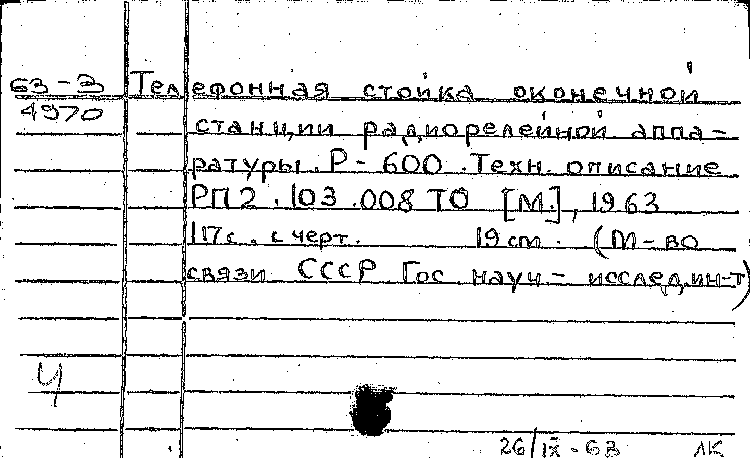 63-3 Телефонная стойка оконечной
4970
станции радиорелейной аппа-
ратуры. Р-600. Техн. описание
РП2.103.008 ТО [М.], 1963
117с. с черт. 19 см. (М-во
связи СССР Гос. науч-исслед. ин-т)
Ч
26/IX-63 ЛК